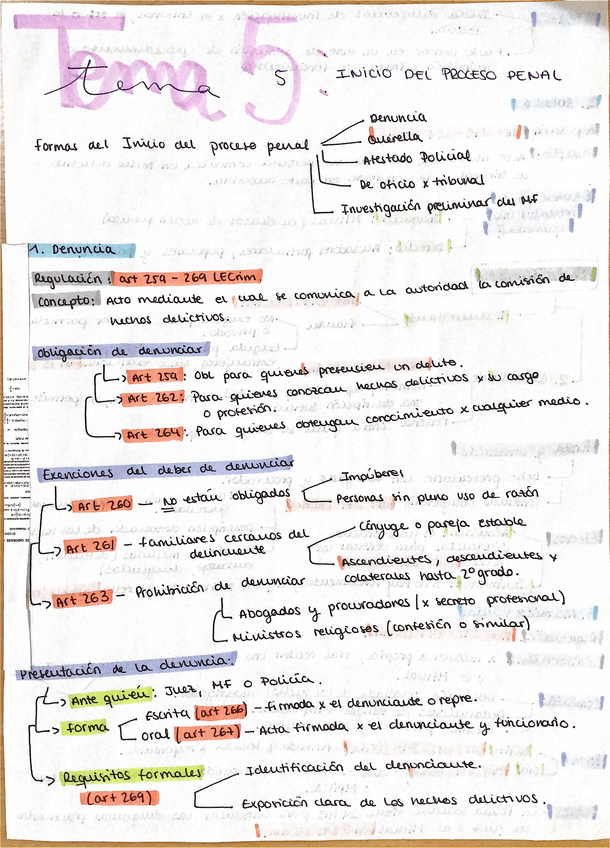 Tema 5:
tema 5 INICIO DEL PROCESO PENAL
Formas del Inicio del proceso penal
Denuncia
Querella
Atestado Policial
De oficio x tribunal
Investigación preliminar del MF
1. Denuncia
Regulación: art 259 - 269 LECrim.
Concepto: Acto mediante el cual se comunica a la autoridad la comisión de
hechos delictivos.
Obligación de denunciar
Art 259: Obl para quienes presencien un delito.
Art 262: Para quienes conozcan hechos delictivos x su cargo
o profesión.
Art 264: Para quienes obtengan conocimiento x cualquier medio.
Exenciones del deber de denunciar
Art 260 — NO están obligados
Impúberes
Personas sin pleno uso de razón
Art 261 — familiares cercanos del
delincuente
Cónyuge o pareja estable
Ascendientes, descendientes x
colaterales hasta 2º grado.
Art 263 — Prohibición de denunciar
Abogados y procuradores (x secreto profesional)
Ministros religiosos (confesión o similar)
Presentación de la denuncia:
Ante quién: Juez, MF o Policía.
Forma
Escrita (art 266) — firmada x el denunciante o repre.
Oral (art 267) — Acta firmada x el denunciante y funcionario.
Requisitos formales
(art 269)
Identificación del denunciante.
Exposición clara de los hechos delictivos.